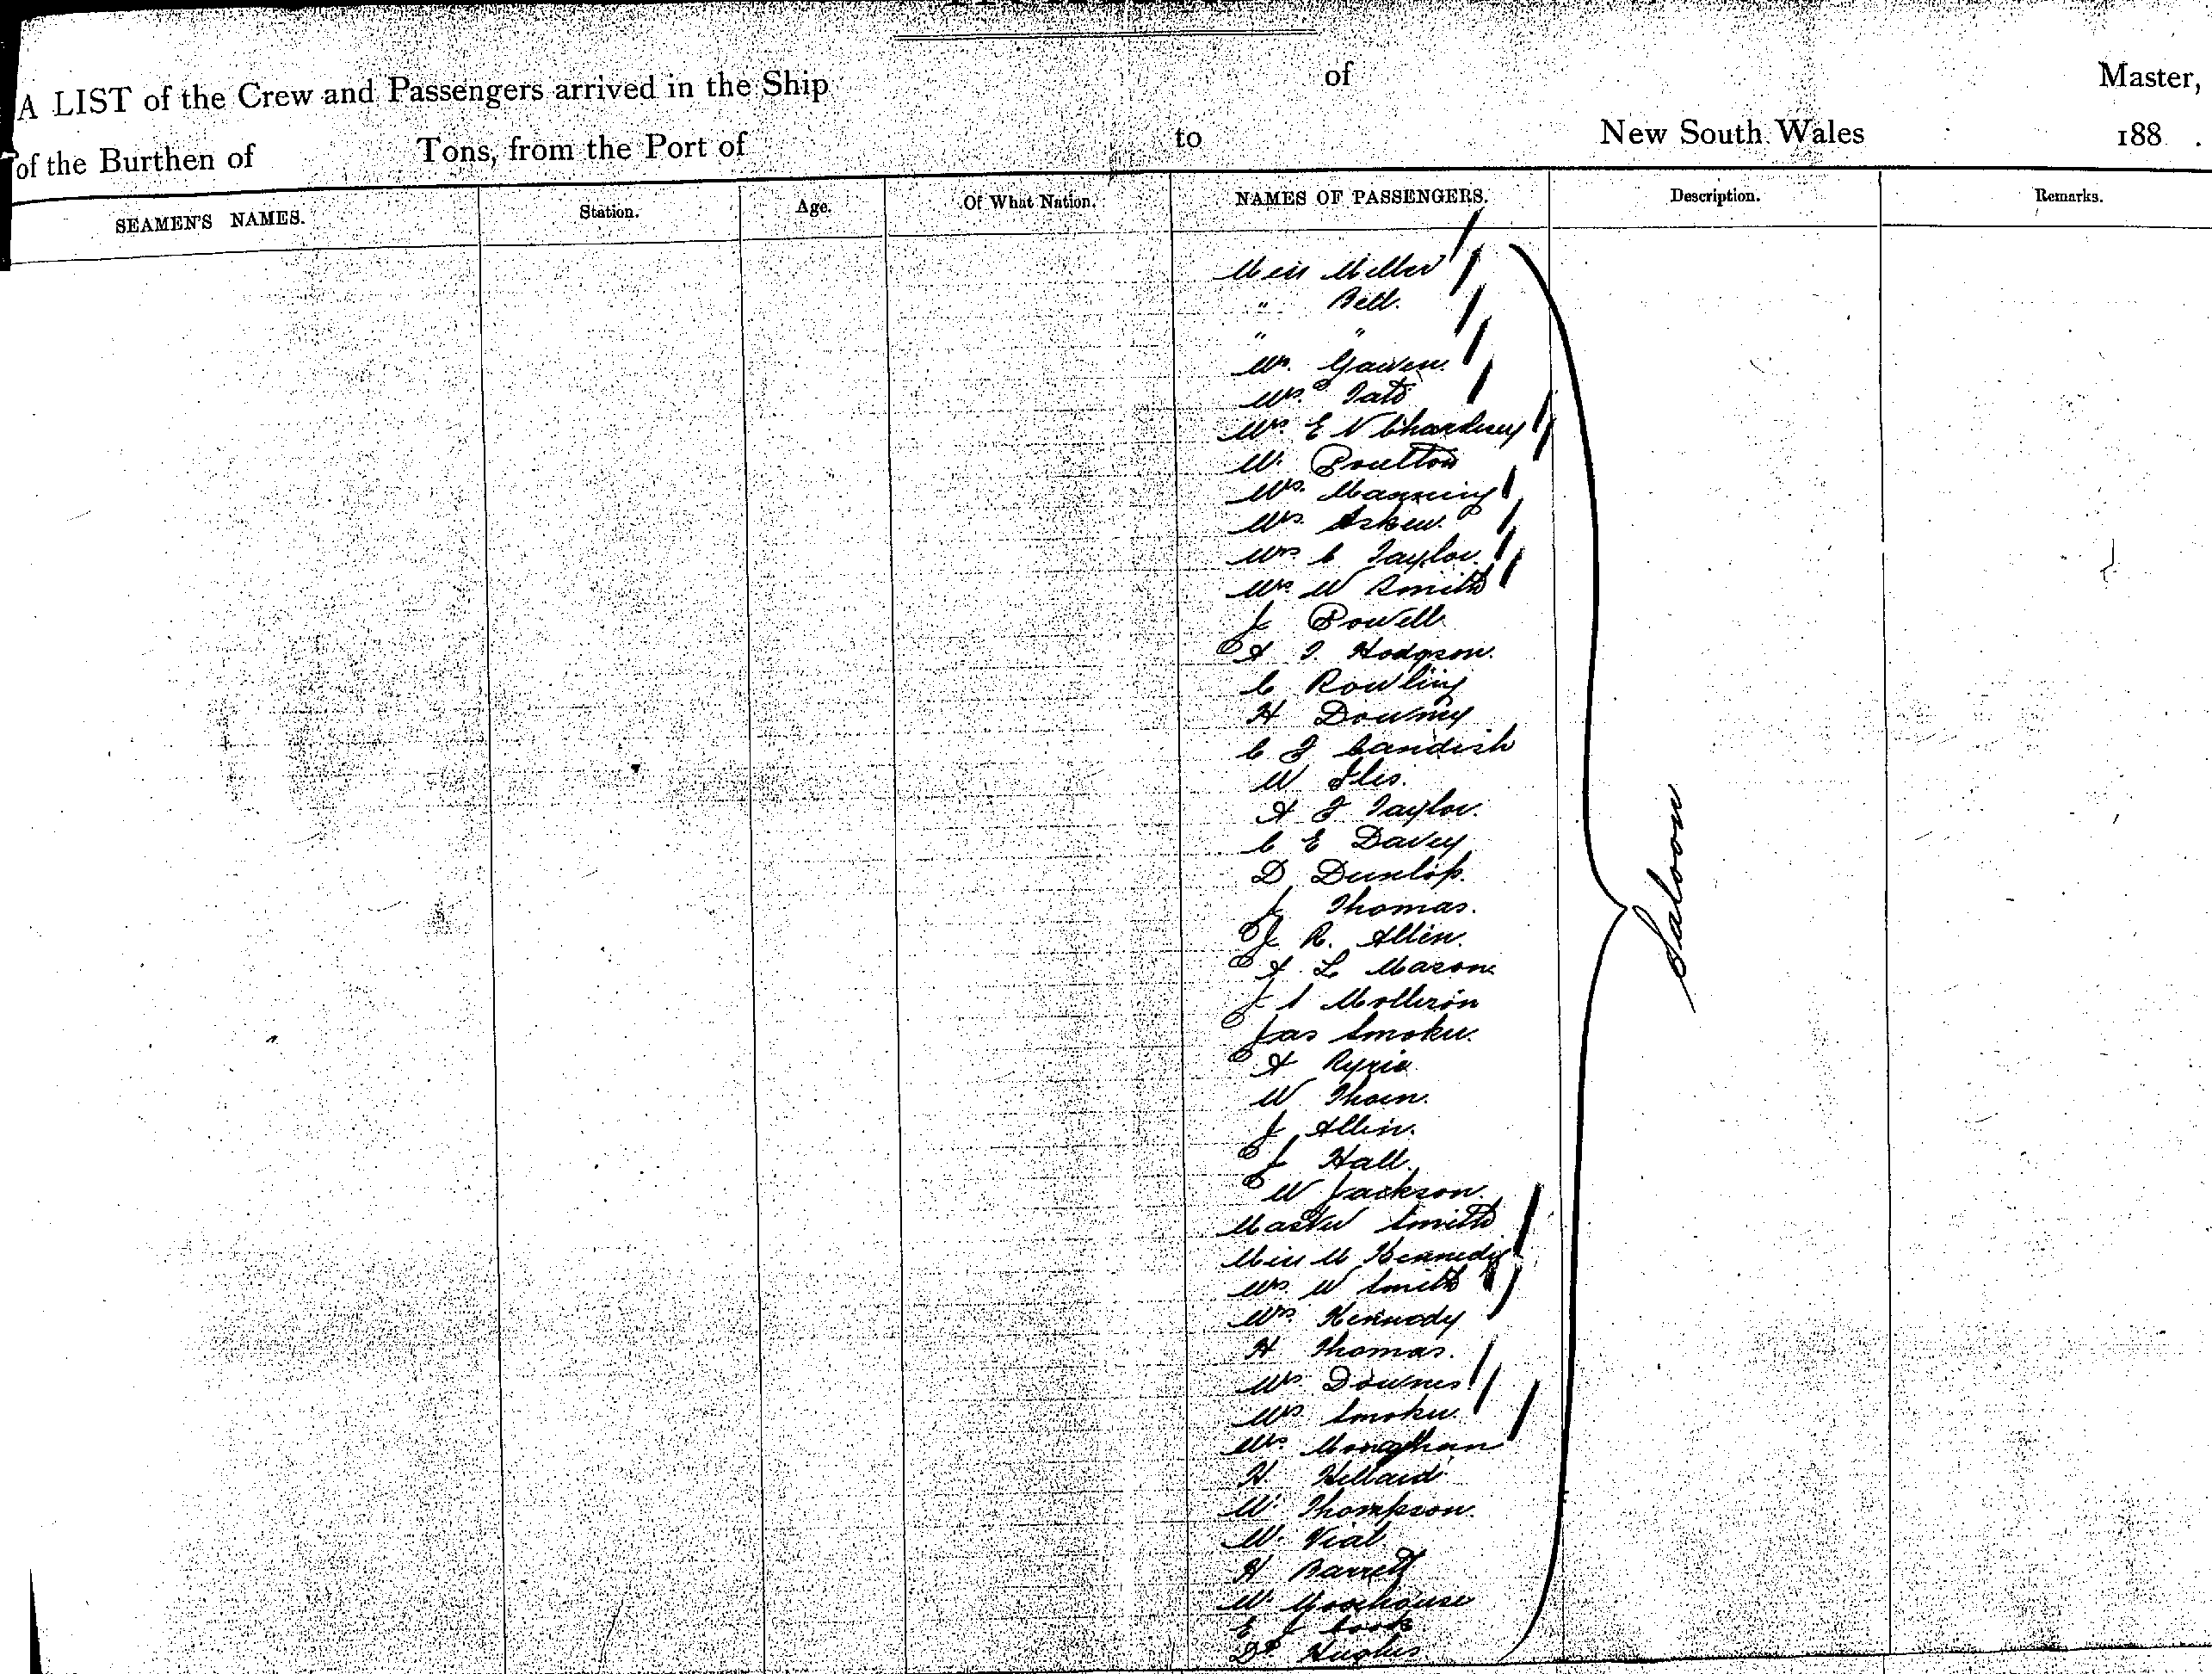 A LIST of the Crew and Passengers arrived in the Ship of Master,
of the Burthen of Tons, from the Port of to New South Wales 188 .
SEAMEN'S NAMES. Station. Age. Of What Nation. NAMES OF PASSENGERS. Description. Remarks.
Miss Miller
" Bell.
" "
Mr. Gawen.
Mrs Tate
Mrs E N
W. Poulton
Mrs. Manning
Mrs. Askew.
Mrs. C Taylor.
Mrs. W Smith
J Powell
A T Hodgson.
C Rowling
H Downey
C F Candish
W Iles.
A F Taylor.
C E Davey
D Dunlop.
J Thomas.
J R. Allen.
A L Mason
J S
Jas Smoker.
A Ryrie
W Thorn.
J Allen.
J Hall.
W Jackson.
Master Smith
Miss M Kennedy
Mrs W Smith
Mrs. Kennedy
H Thomas.
Mrs Downes
Mrs Smoker.
Mrs. Monaghan
H. Hillard
W. Thompson.
W. Vial
H Barrett
W.
E J Cook
Dr Hughes.
Saloon